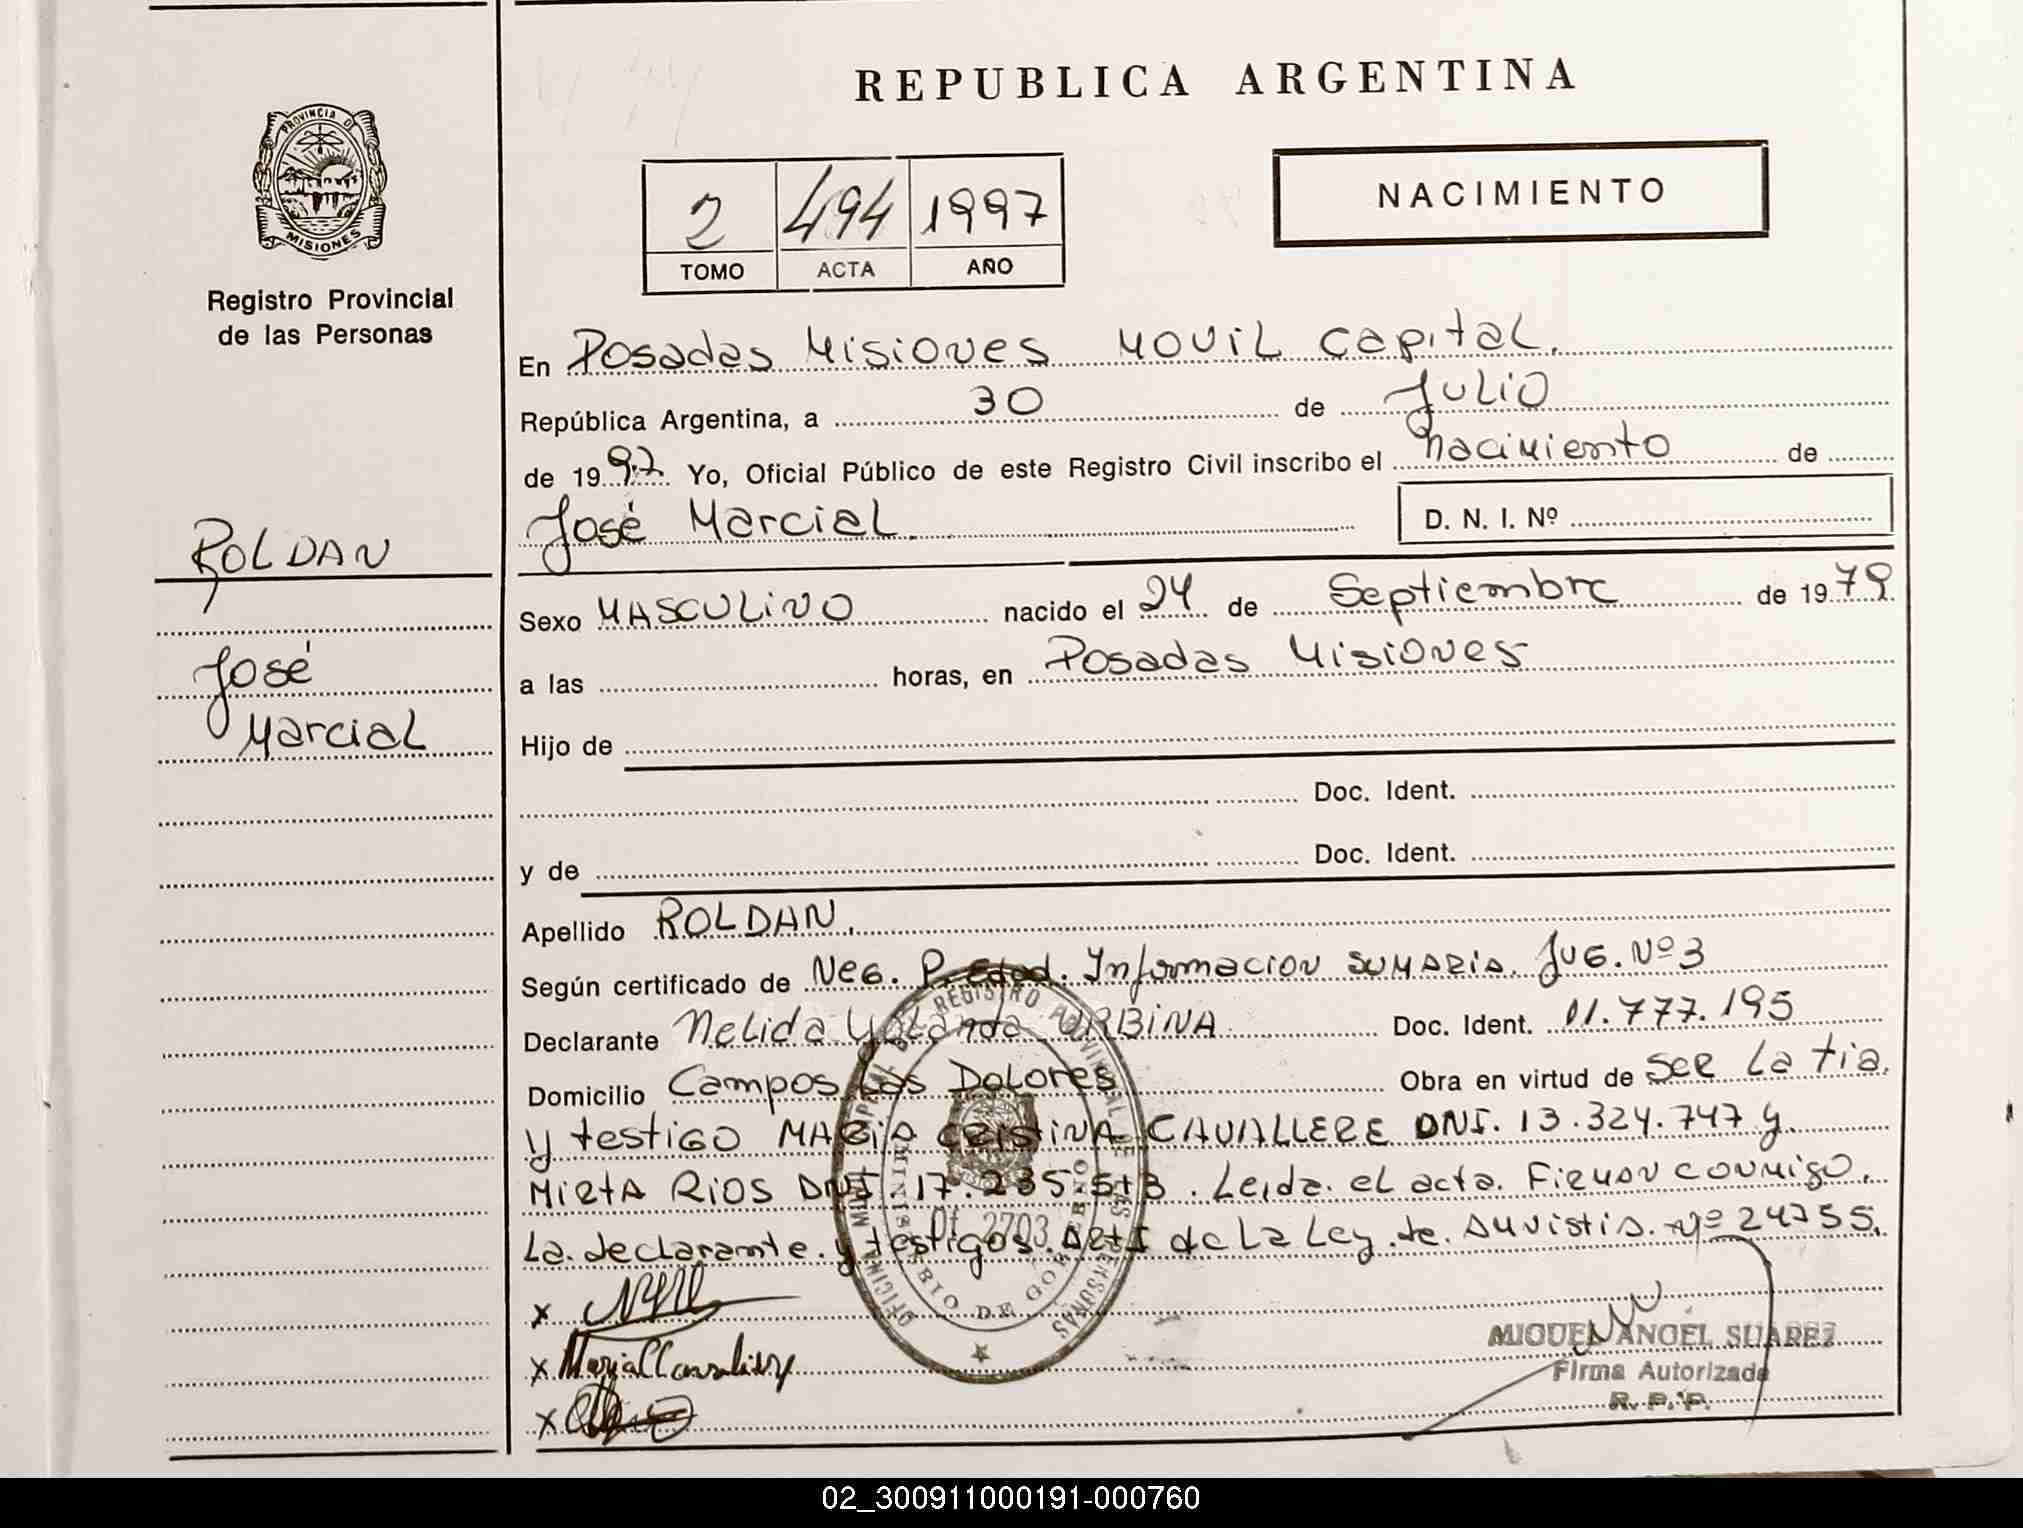 REPUBLICA ARGENTINA
PROVINCIA D
MISIONES
Registro Provincial
de las Personas
2 494 1997
TOMO ACTA AÑO
NACIMIENTO
En Posadas Misiones Movil Capital.
República Argentina, a 30 de Julio
de 1997 Yo, Oficial Público de este Registro Civil inscribo el nacimiento de
José Marcial. D. N. I. Nº
ROLDAN
José
Marcial
Sexo MASCULINO nacido el 24 de Septiembre de 1979
a las horas, en Posadas Misiones
Hijo de
Doc. Ident.
y de Doc. Ident.
Apellido ROLDAN.
Según certificado de Neg. P. Edad. Informacion SUMARIA. Jug. Nº 3
Declarante Nelida Yolanda URBINA Doc. Ident. 11.777.195
Domicilio Campos Las Dolores Obra en virtud de ser la tia.
y testigo MARIA CRISTINA CAVALLERE DNI. 13.324.747 y
MIRTA RIOS DNI. 17.235.513. Leida el acta. Firman conmigo.
La declarante y testigos. Art I de la Ley de Anvistia. Nº 24755.
X
X Maria C Cavallere
X
OFICINA MUNICIPAL DEL REGISTRO PROVINCIAL DE LAS PERSONAS
MINISTERIO DE GOBIERNO
Of. 2703
MIGUEL ANGEL SUAREZ
Firma Autorizada
R. P. P.
02_300911000191-000760